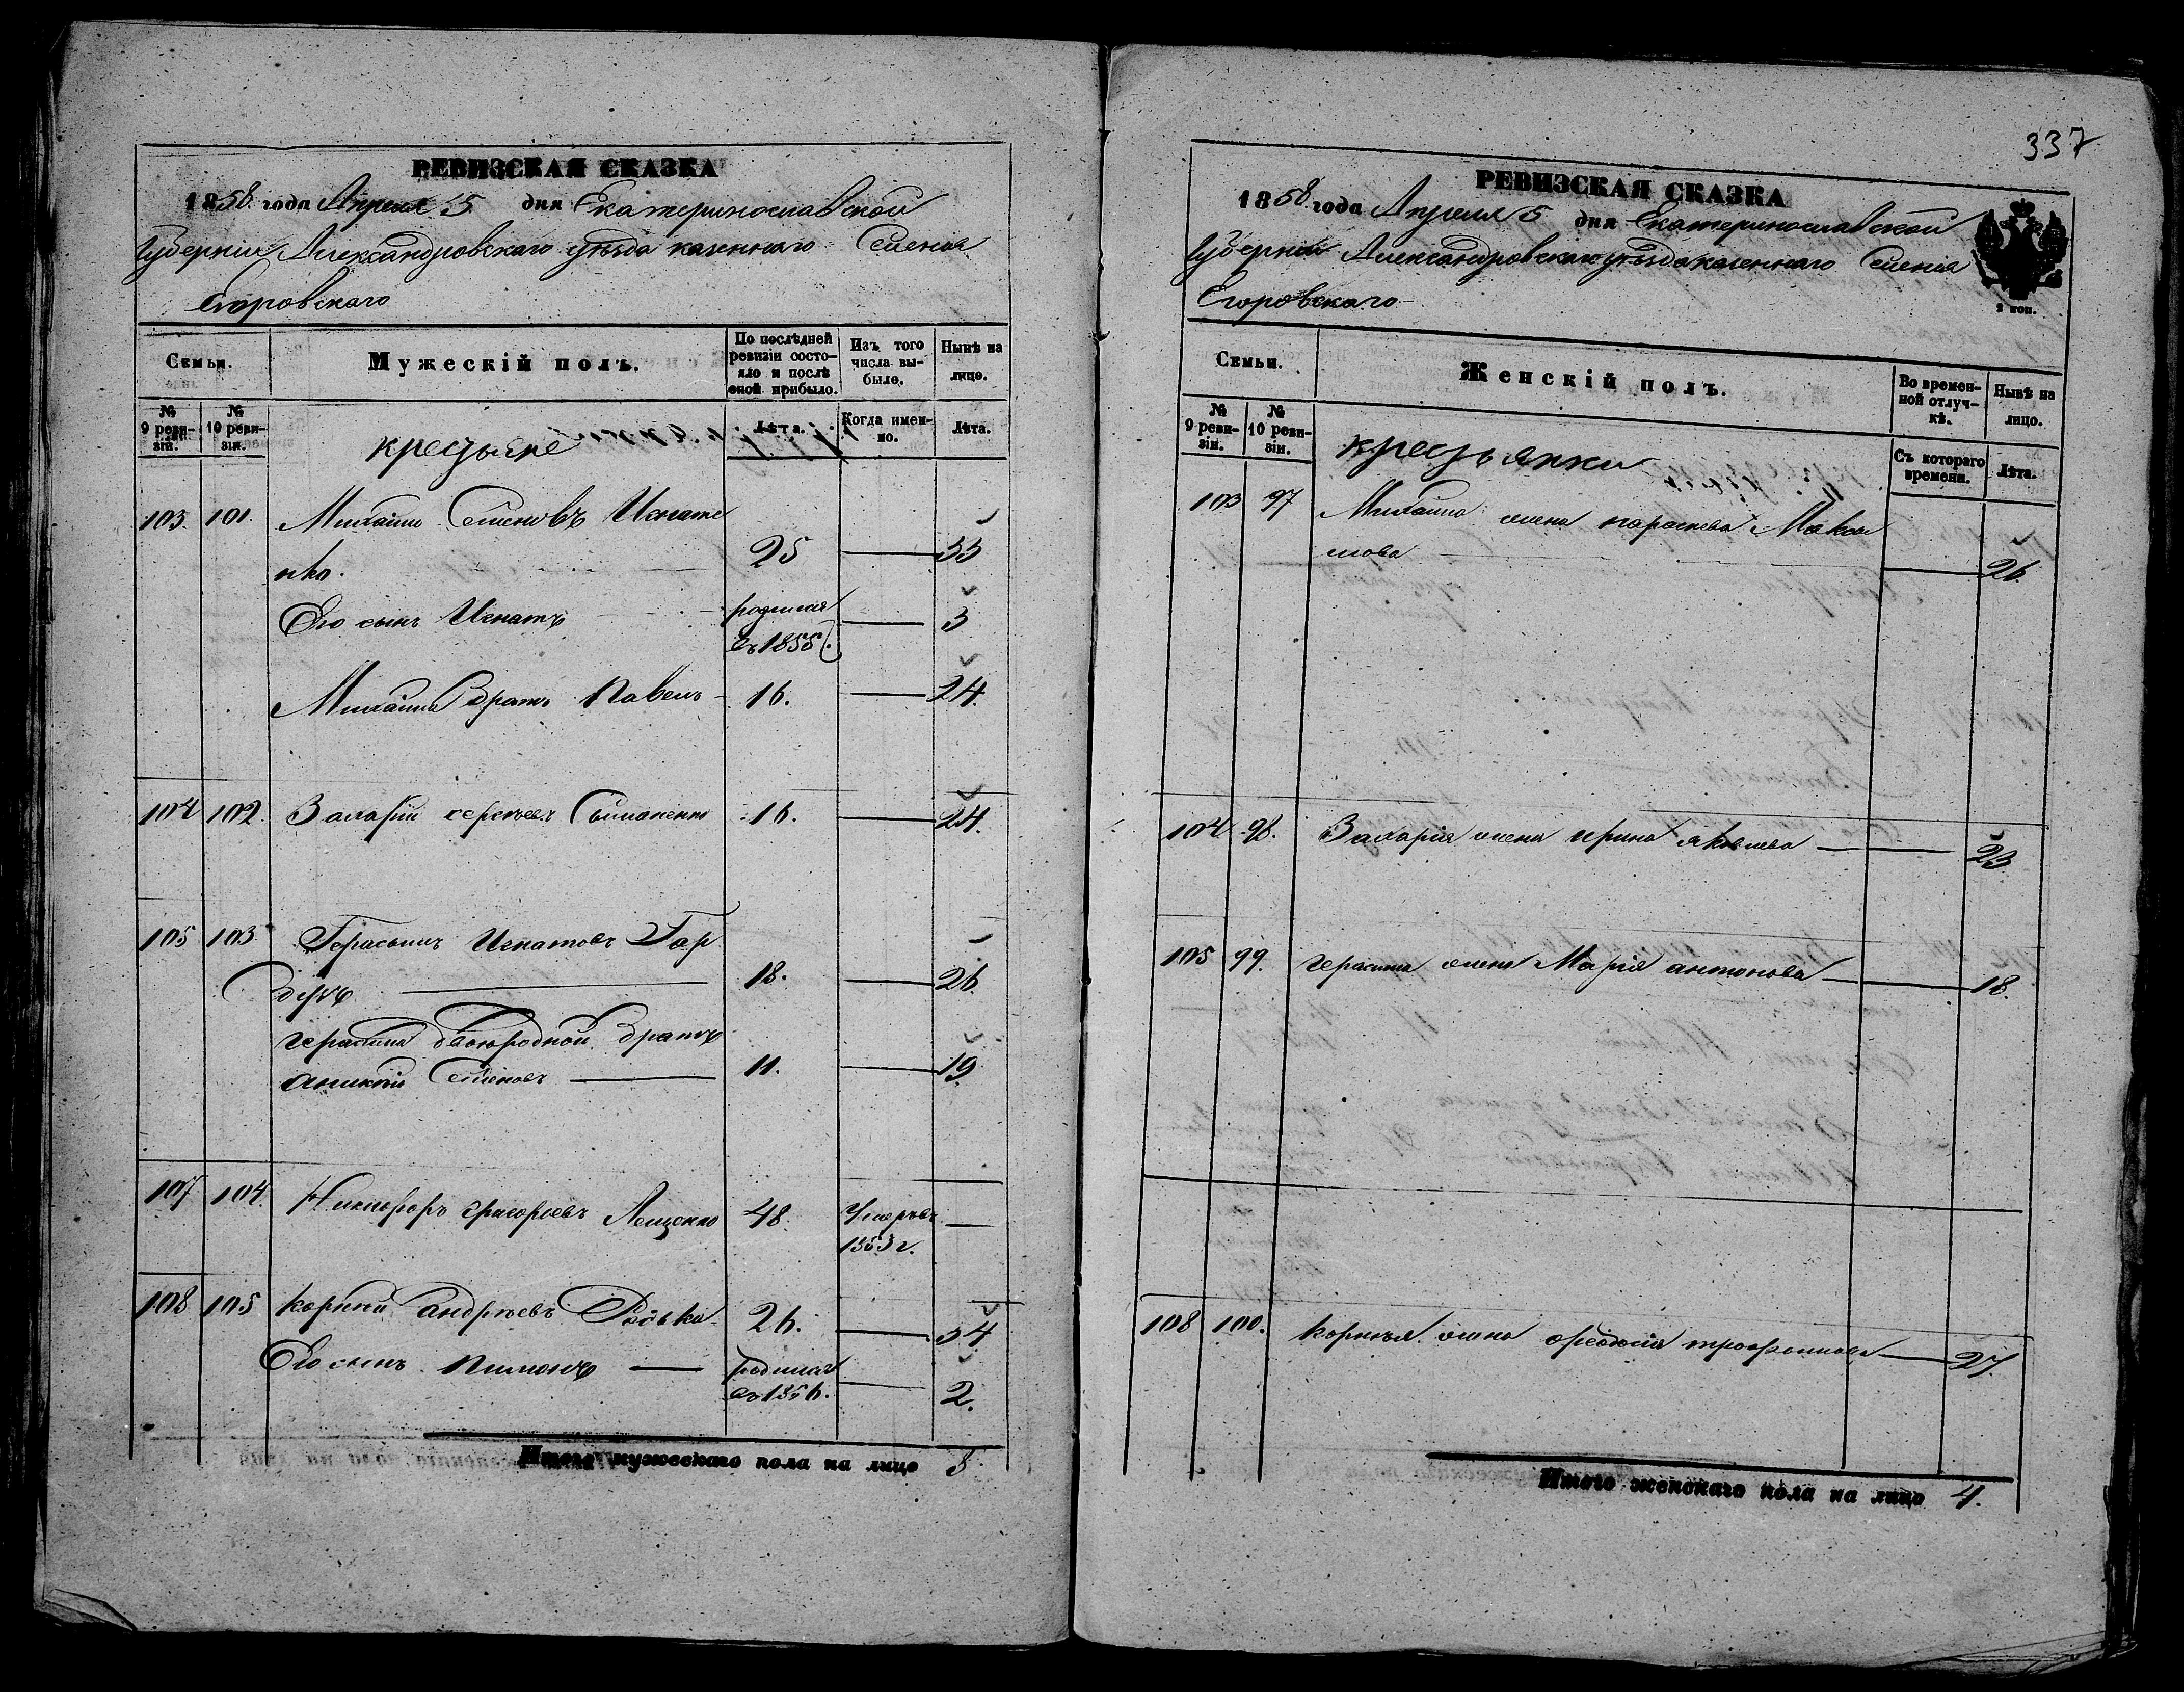 РЕВИЗСКАЯ СКАЗКА
1858 года Апреля 5 дня Екатеринославской
Губерніи Александровскаго уѣзда казеннаго Селенія
Егоровскаго
Семьи.
Мужескій полъ.
По послѣдней ревизіи состояло и послѣ оной прибыло.
Изъ того числа выбыло.
Нынѣ на лицо.
№ 9 ревизіи.
№ 10 ревизіи.
крестьяне
Лѣта.
Когда именно.
Лѣта.
103. 101. Михайло Семеновъ Игнате
нко. 25 33
Его сынъ Игнатъ родился
въ 1855 3
Михайла братъ Павелъ 16. 24.
104 102. Захарій 16. 24.
105 103. Герасимъ Игнатовъ Гар
18. 26.
Герасима двоюродной братъ
Семеновъ 11. 19
107 104. Никифоръ Григорьевъ Лещенко 48. Умеръ въ
1853 г.
108 105 Корній Андрѣевъ Редька 26. 34
Его сынъ Пимонъ родился
въ 1856. 2.
Итого мужескаго пола на лицо 8
337
РЕВИЗСКАЯ СКАЗКА
1858 года Апреля 5 дня Екатеринославской
Губерніи Александровскаго уѣзда казеннаго Селенія
Егоровскаго
2 коп.
Семьи.
Женскій полъ.
Во временной отлучкѣ.
Нынѣ на лицо.
№ 9 ревизіи.
№ 10 ревизіи.
крестьянки
Съ котораго времени.
Лѣта.
103 97 Михайла жена параскева Макси
мова 26.
104. 98. Захарія жена ирина яковлева 23
105 99. Герасима жена Марія антонова 18.
108 100. Корнѣя жена феодосія трофимова 27.
Итого женскаго пола на лицо 4.